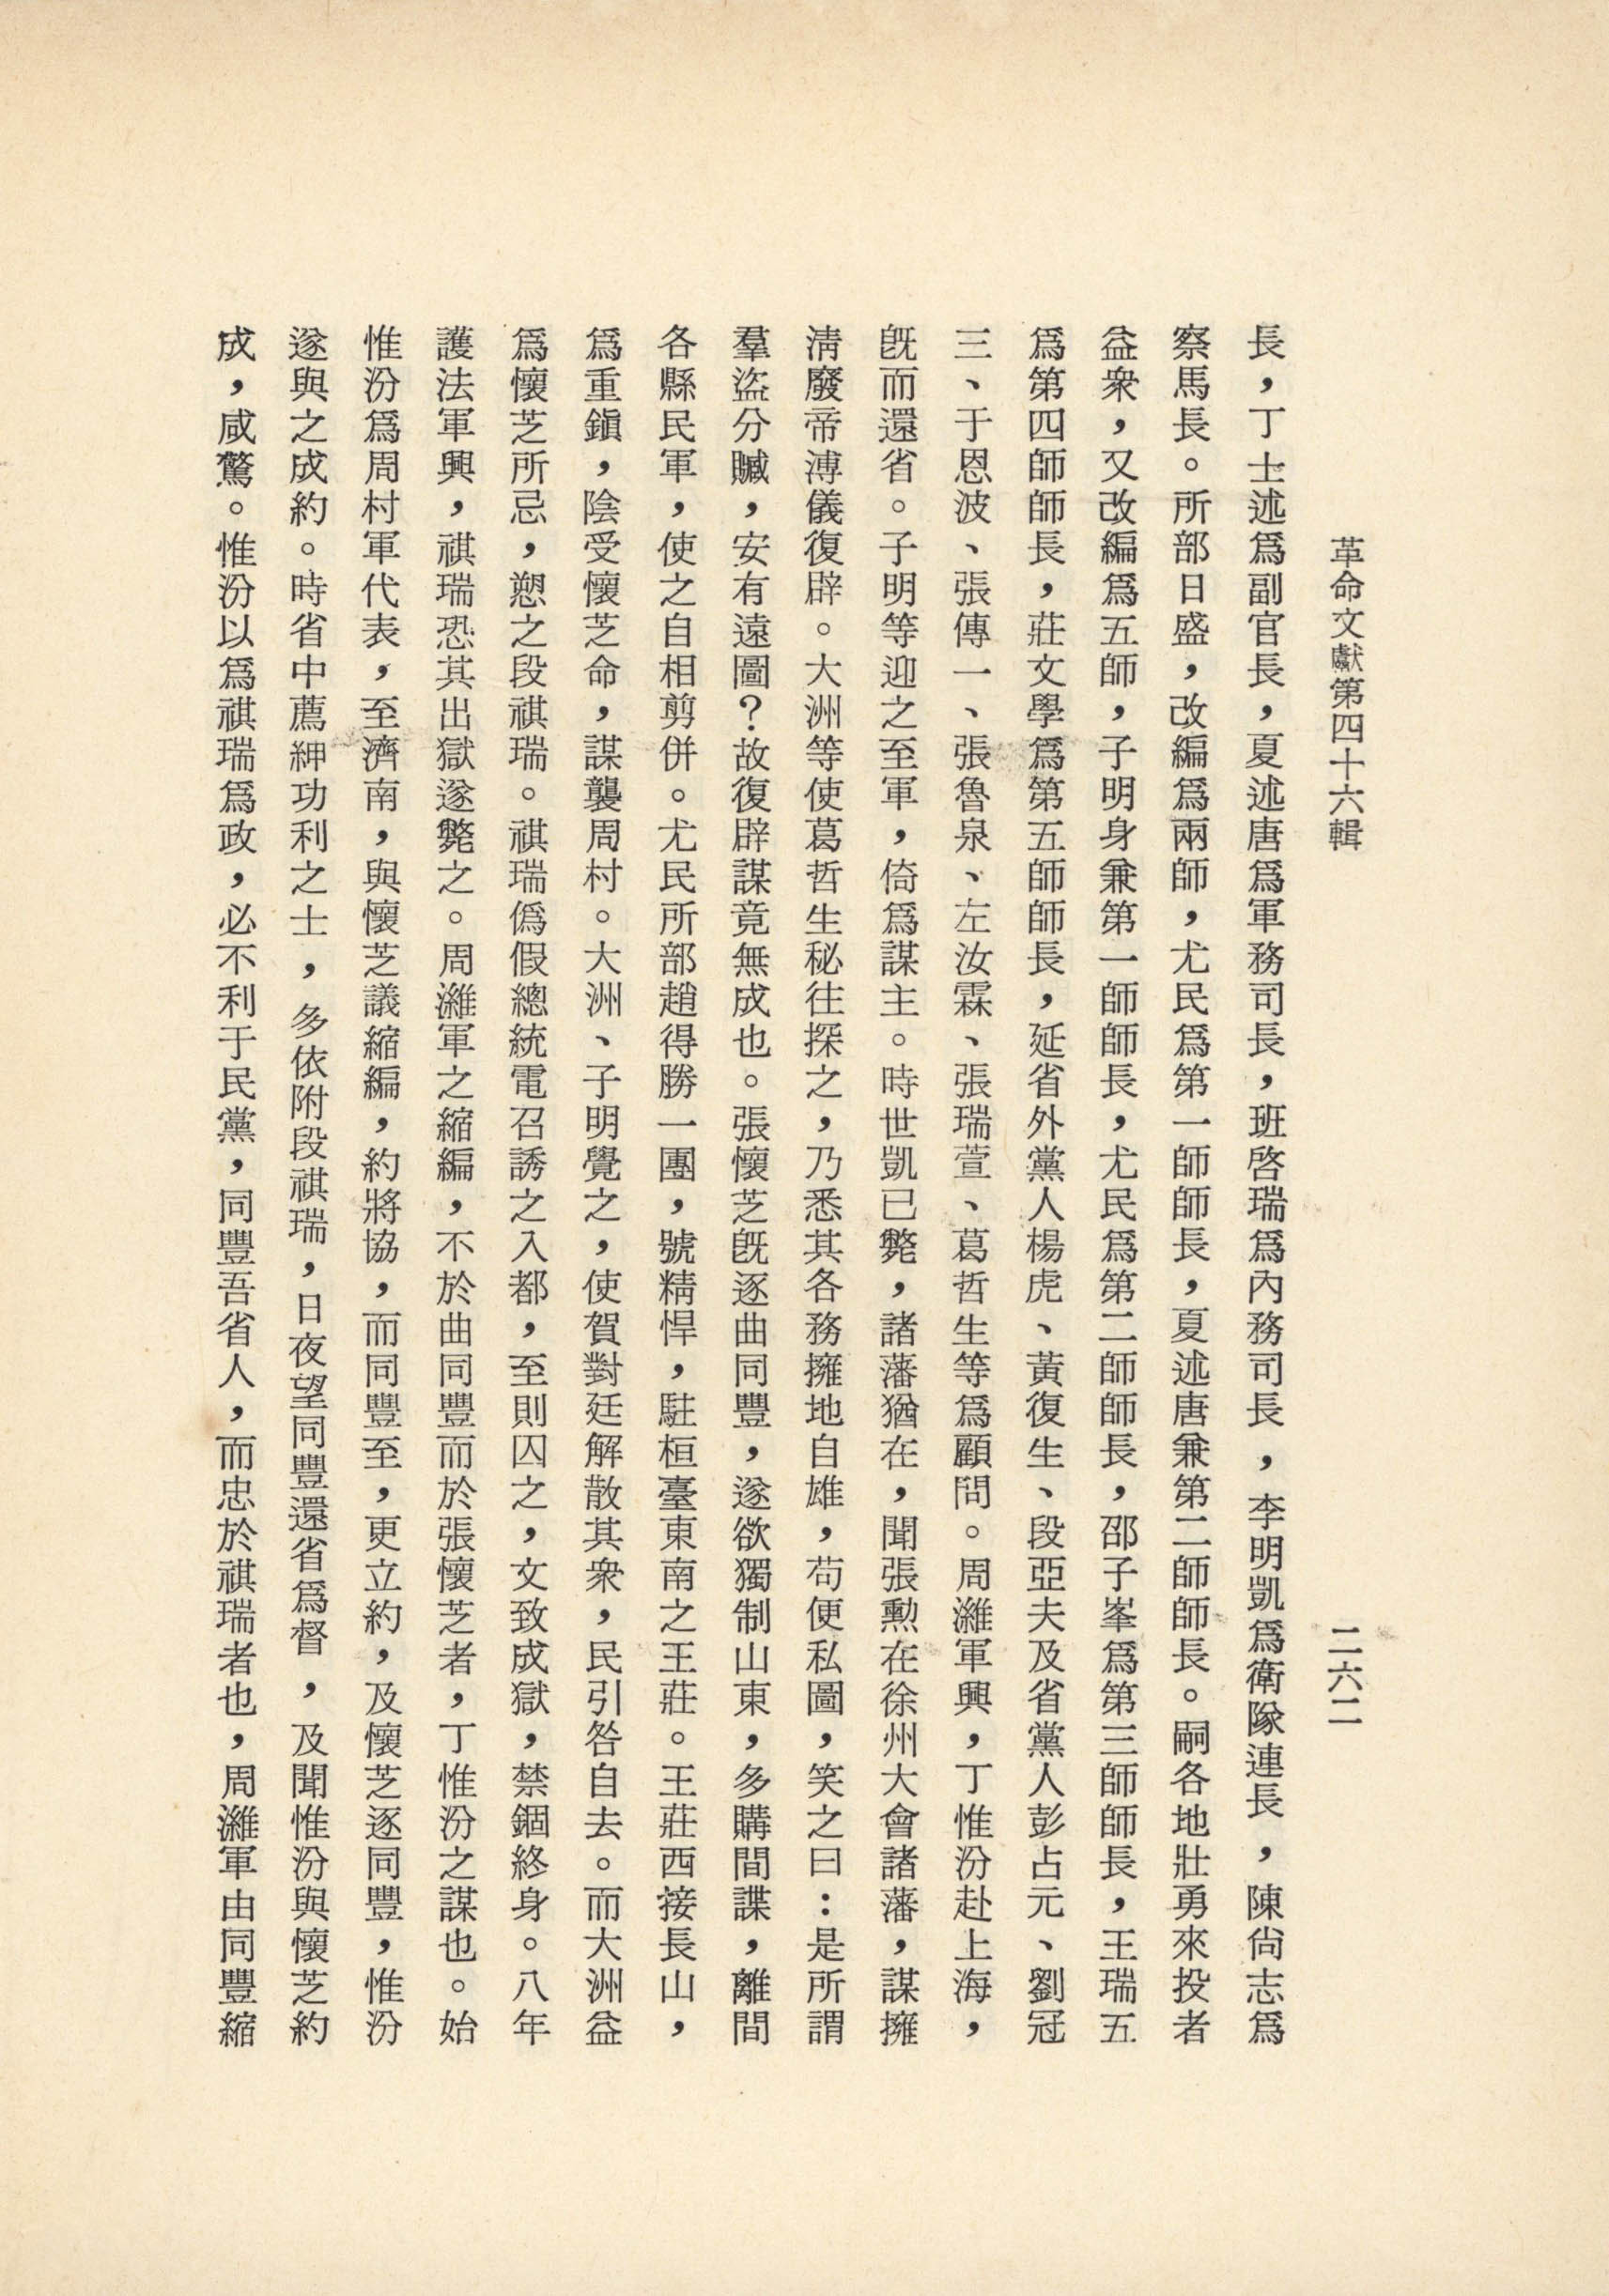 革命文獻第四十六輯
二六二
長，丁士述爲副官長，夏述唐爲軍務司長，班啓瑞爲內務司長，李明凱爲衛隊連長，陳尙志爲
察馬長。所部日盛，改編爲兩師，尤民爲第一師師長，夏述唐兼第二師師長。嗣各地壯勇來投者
益衆，又改編爲五師，子明身兼第一師師長，尤民爲第二師師長，邵子峯爲第三師師長，王瑞五
爲第四師師長，莊文學爲第五師師長，延省外黨人楊虎、黃復生、段亞夫及省黨人彭占元、劉冠
三、于恩波、張傳一、張魯泉、左汝霖、張瑞萱、葛哲生等爲顧問。周濰軍興，丁惟汾赴上海，
旣而還省。子明等迎之至軍，倚爲謀主。時世凱已斃，諸藩猶在，聞張勳在徐州大會諸藩，謀擁
淸廢帝溥儀復辟。大洲等使葛哲生秘往探之，乃悉其各務擁地自雄，苟便私圖，笑之曰：是所謂
羣盜分贓，安有遠圖？故復辟謀竟無成也。張懷芝旣逐曲同豐，遂欲獨制山東，多購間諜，離間
各縣民軍，使之自相剪併。尤民所部趙得勝一團，號精悍，駐桓臺東南之王莊。王莊西接長山，
爲重鎭，陰受懷芝命，謀襲周村。大洲、子明覺之，使賀對廷解散其衆，民引咎自去。而大洲益
爲懷芝所忌，愬之段祺瑞。祺瑞僞假總統電召誘之入都，至則囚之，文致成獄，禁錮終身。八年
護法軍興，祺瑞恐其出獄遂斃之。周濰軍之縮編，不於曲同豐而於張懷芝者，丁惟汾之謀也。始
惟汾爲周村軍代表，至濟南，與懷芝議縮編，約將協，而同豐至，更立約，及懷芝逐同豐，惟汾
遂與之成約。時省中薦紳功利之士，多依附段祺瑞，日夜望同豐還省爲督，及聞惟汾與懷芝約
成，咸驚。惟汾以爲祺瑞爲政，必不利于民黨，同豐吾省人，而忠於祺瑞者也，周濰軍由同豐縮